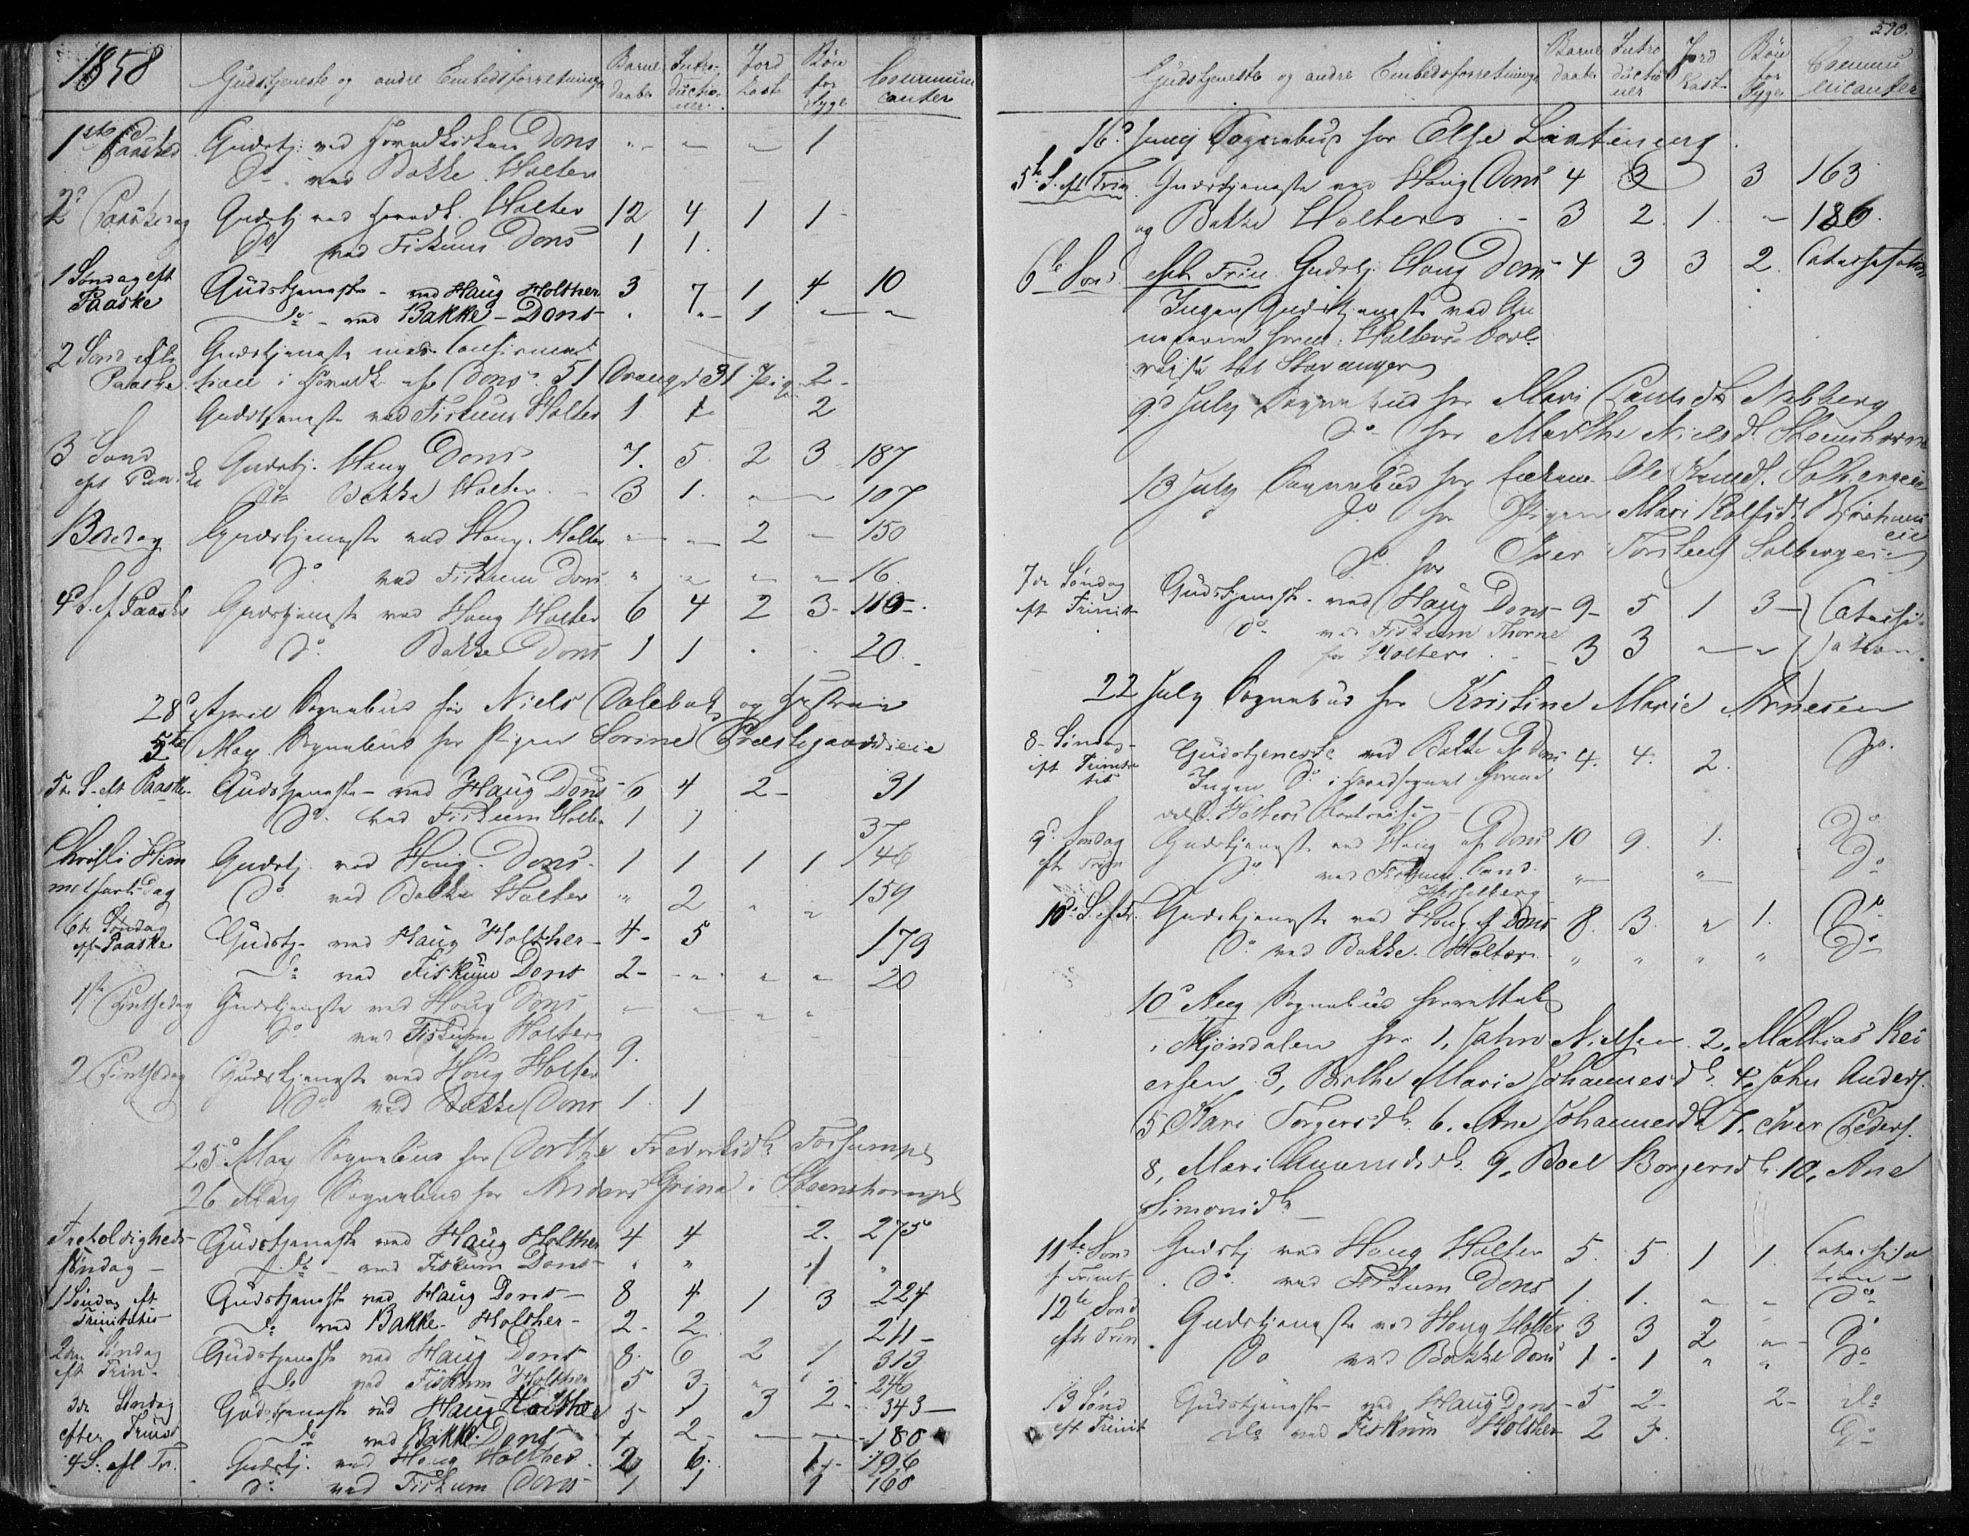 1858 Gudstjeneste og andre Embedsforretninger Barne daabe Intro- ductio- ner Jord kast Bøn for Syge Communi canter
1ste Paasked Gudstj: ved Hovedkirken Dons " — — 1
Do ved Bakke Holter
2 Paaskedag Gudstj ved Hovedk. Holter 12 4 1 1
Do ved Fiskum Dons 1 1.
1 Søndag eft Paaske Gudstjeneste - ved Haug Holther 3 7 1 4 10
Do - ved Bakke - Dons - " " 1 — —
2 Sønd efter Paaske Gudstjeneste med Confirma
tion i Hovedk. af Dons. 51 Drenge 31 Pig. 2 -
Gudstjeneste ved Fiskum Holter 1 1 2
3 Sønd eft Paaske Gudstj. Haug Dons 7. 5 2 3 187
Do Bakke Holter 3 1. — — 107
Bededag Gudstjeneste ved Haug. Holter — — 2 — 150
Do ved Fiskum Dons " " — — 16
4 S. ef. Paaske Gudstjeneste ved Haug Holter 6 4 2 3 - 110
Do Bakke Dons 1 1 . . 20
28 April Sognebud for Niels Dalebak og Hustru
5te May Sognebud for Pigen Sorine Præstegaardseie
5te S. eft Paaske Gudstjeneste - ved Haug Dons 6 4 2 - 31
Do ved Fiskum Holter 1 1 37
Christi Him
melfartsdag Gudstj ved Haug. Dons. 1 1 1 1 146
Do ved Bakke Holter " 2 " " 159
6te Søndag eft Paaske Gudstj - ved Haug Holther 4 - 5 179
Do ved Fiskum Dons 2 - - " " — 20
1ste Pintsedag Gudstjeneste ved Haug Dons — — " "
Do ved Fiskum Holter
2 Pintsedag Gudstjeneste ved Haug Holter 9.
Do ved Bakke Dons 1. 1
25 May Sognebud for Dorthe Frederiksdr Fossumpl
26 May Sognebud for Anders Grina i
Trefoldigheds- Søndag - Gudstjeneste ved Haug Holther 4 4 2. 275
Do - ved Fiskum Dons " " 1 "
1 Søndag eft Trinitatis Gudstjeneste ved Haug Dons - 8 4 1 3 224
Do ved Bakke - Holther - 2 - 2 211 -
2den Søndag eft Trin - Gudstjeneste ved Haug Dons 8. 6 2 1 313
Do ved Fiskum Holther 5 3 - " 246
3de Søndag efter Trinit Gudstjeneste ved Haug Holther 5 - 1 3 2 - 343 -
Do ved Bakke Dons 2 - — — 180
4 S. eft Tr. Gudstj. ved Haug Holther 2 6. 1 - 196
Do ved Fiskum Dons 1 1 1 160
590.
Gudstjeneste og andre Embedsforretninger Barne daabe Intro ductio ner Jord kast Bøn for Syge Commu nicanter
16 Juny Sognebud for Else
5te S. eft Trin Gudstjeneste ved Haug Dons 4 3 3 163
og Bakke Holter - 3 2 1. — 186.
6te Sønd eft Trin Gudstj. Haug Dons 4 3 3 2.
Ingen Gudstjeneste ved An
nexerne form. Holters
reise til Stavanger
9 July Sognebud for Mari Nebberg
Do for Marthe Nielsdr
13 July Sognebud for Enkem. Ole
Do for Pigen Mari
Do for Iver Torstens Solbergeie
7de Søndag eft Trinit Gudstjeneste - ved Haug Dons - 9 - 5 1 3 - Catechi-
Do - ved Fiskum Thorne
for Holter. 3 3 — — sation.
22 July Sognebud for Kristine Marie Arnesen
8 - Søndag - eft Trinita tis Gudstjeneste ved Bakke af Dons 4. 4. 2. Do.
Ingen Do i Hovedsognet formed
elst Holters Bortreise -
9 Søndag eft Trin Gudstjeneste ved Haug af Dons 10 9. 1. Do
Do ved Fiskum Cand. Hesselberg " " Do
10de S. ef. Tr. Gudstjeneste ved Haug af Dons 8. 3. " 1. Do
Do ved Bakke. Holter. " " " " Do
10 Aug Sognebud forrettet
i Mjøndalen for 1, Nielsen 2, Mathias Rei
ersen 3, Berthe Marie Johannesdr. 4, John Anders.
5, Kari Torgersdr. 6. Ane Johannesdr 7. Iver Peders.
8, Mari 9, Boel Borgersdr 10, Ane
Simonsdr -
11te Sønd f. Trinit Gudstj ved Haug Holter 5. 5. 1 1. Catechisa
Do ved Fiskum Dons 1. 1. — — tion - Do
12te Sønd eft Trin Gudstjeneste ved Haug Holter 3 3 2 " - Do
Do ved Bakke Dons 1 - 1 " " Do
13 Sønd eft Trinit Gudstjeneste - ved Haug Dons - 5 2 - 2 - Do
Do ved Fiskum Holther 2 3. Do